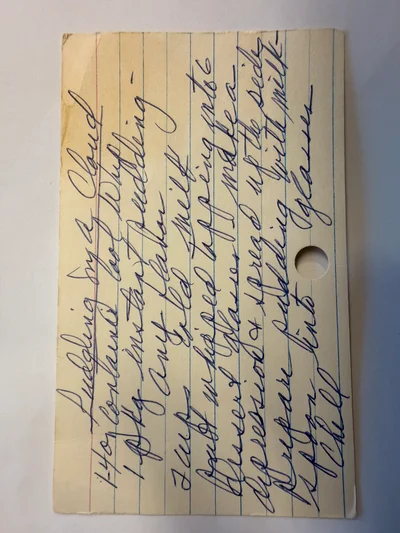 Pudding in a Cloud
1 4oz Container Cool Whip
1 pkg instant pudding -
any flavor
2 cups cold milk
Put whipped topping into 6
dessert glasses - make a
depression & spread up the side
Prepare pudding with milk -
spoon into glasses
Chill